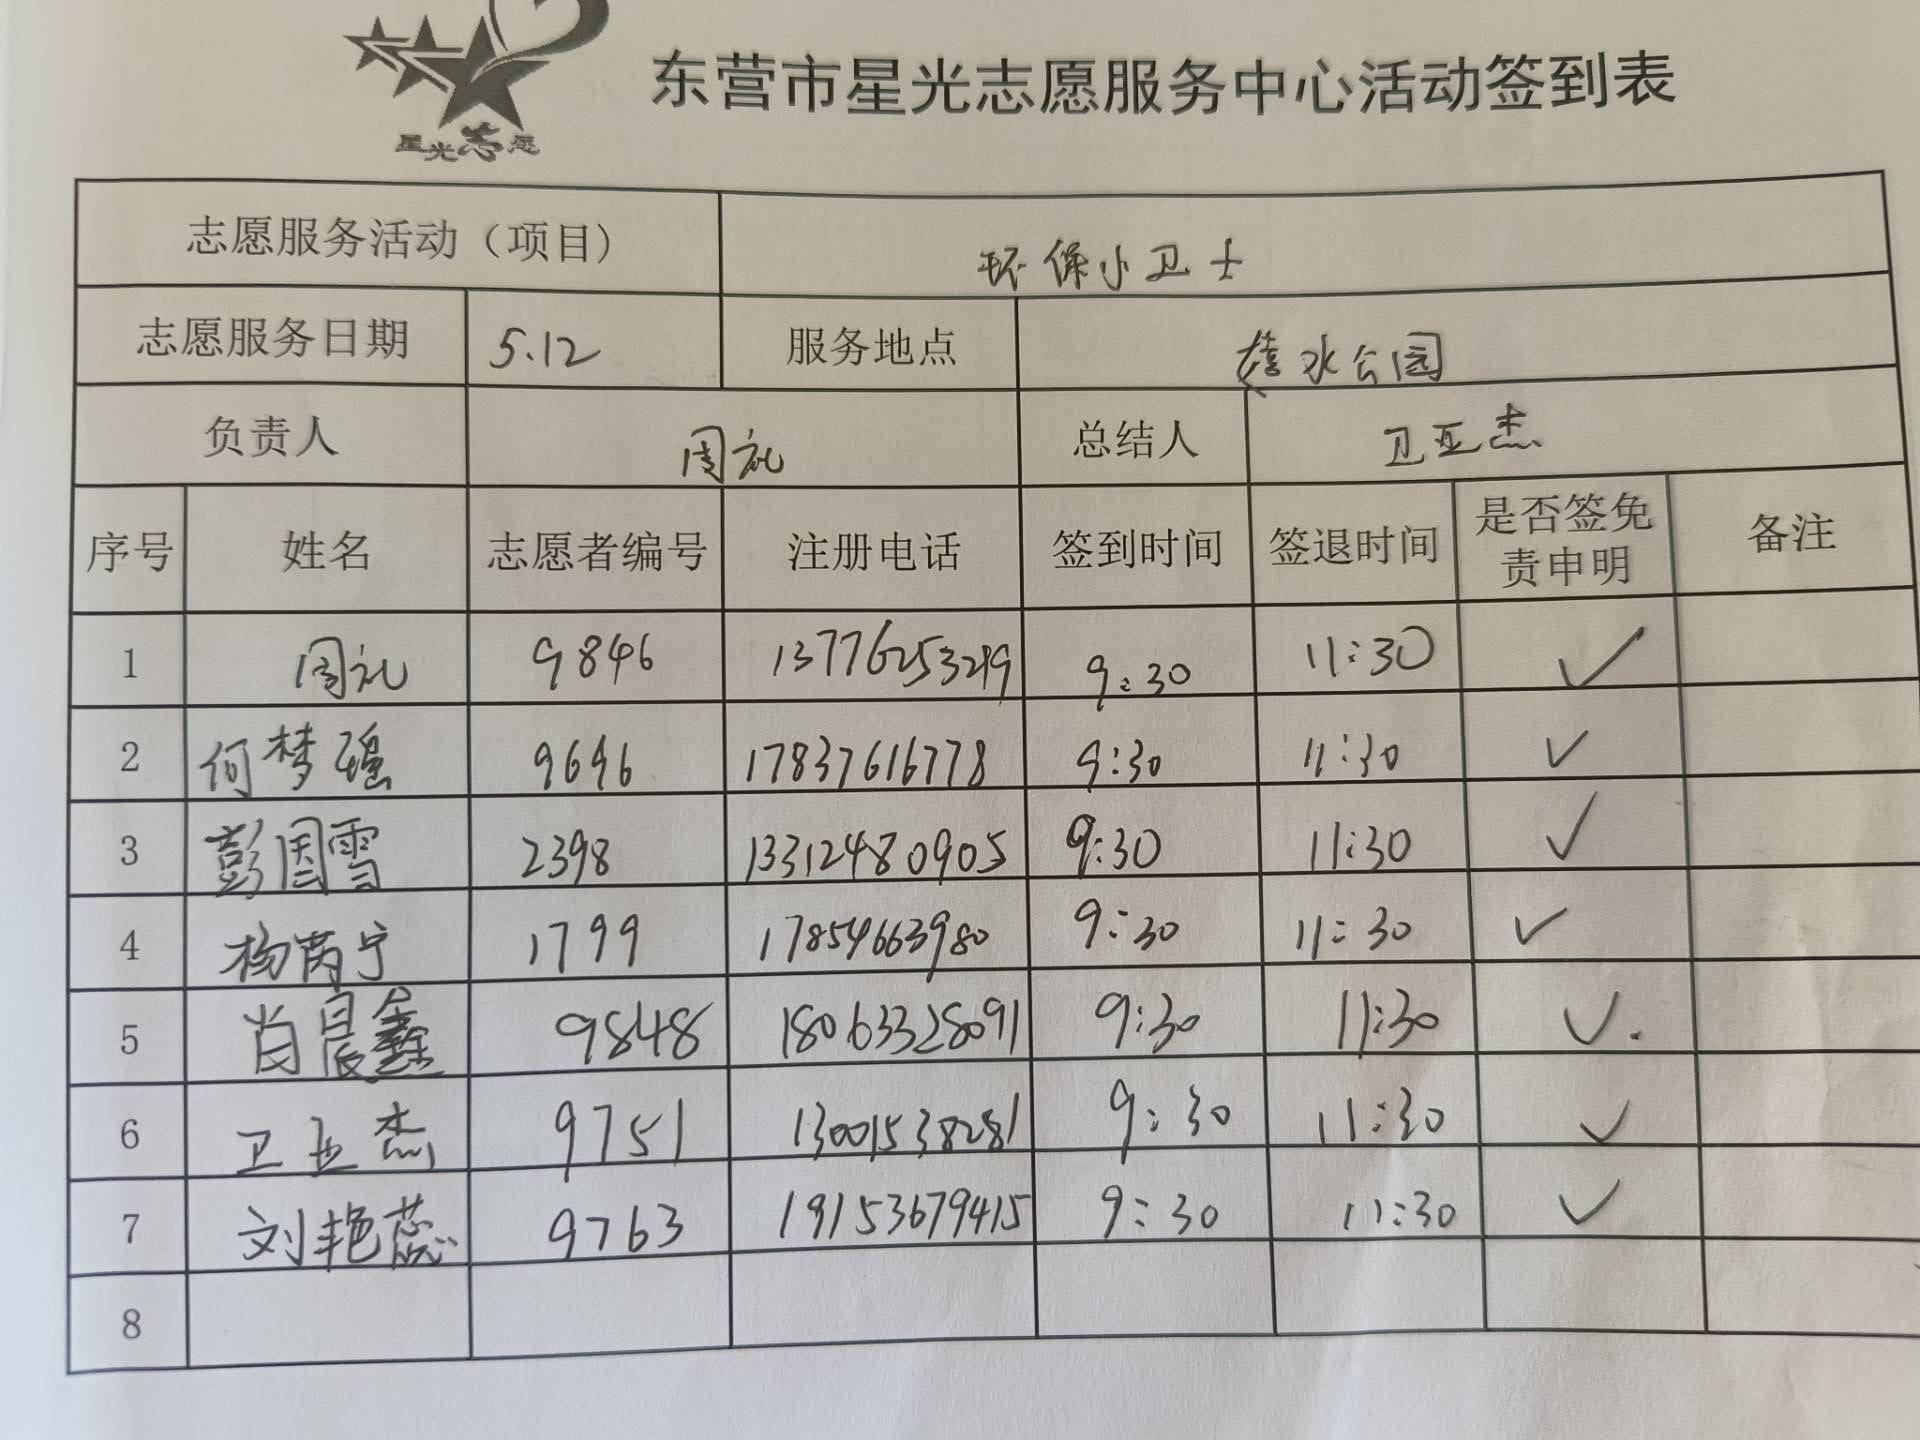 星光志愿
东营市星光志愿服务中心活动签到表
志愿服务活动（项目） 环保小卫士
志愿服务日期 5.12 服务地点 水公园
负责人 周礼 总结人 卫亚杰
序号 姓名 志愿者编号 注册电话 签到时间 签退时间 是否签免责申明 备注
1 周礼 9846 13776253219 9:30 11:30 ✓
2 何梦瑶 9696 17837616778 9:30 11:30 ✓
3 彭国雪 2398 13312480905 9:30 11:30 ✓
4 杨芮宁 1799 17854663980 9:30 11:30 ✓
5 肖晨鑫 9848 18063328091 9:30 11:30 ✓
6 卫亚杰 9751 13001538281 9:30 11:30 ✓
7 刘艳蕊 9763 19153679415 9:30 11:30 ✓
8